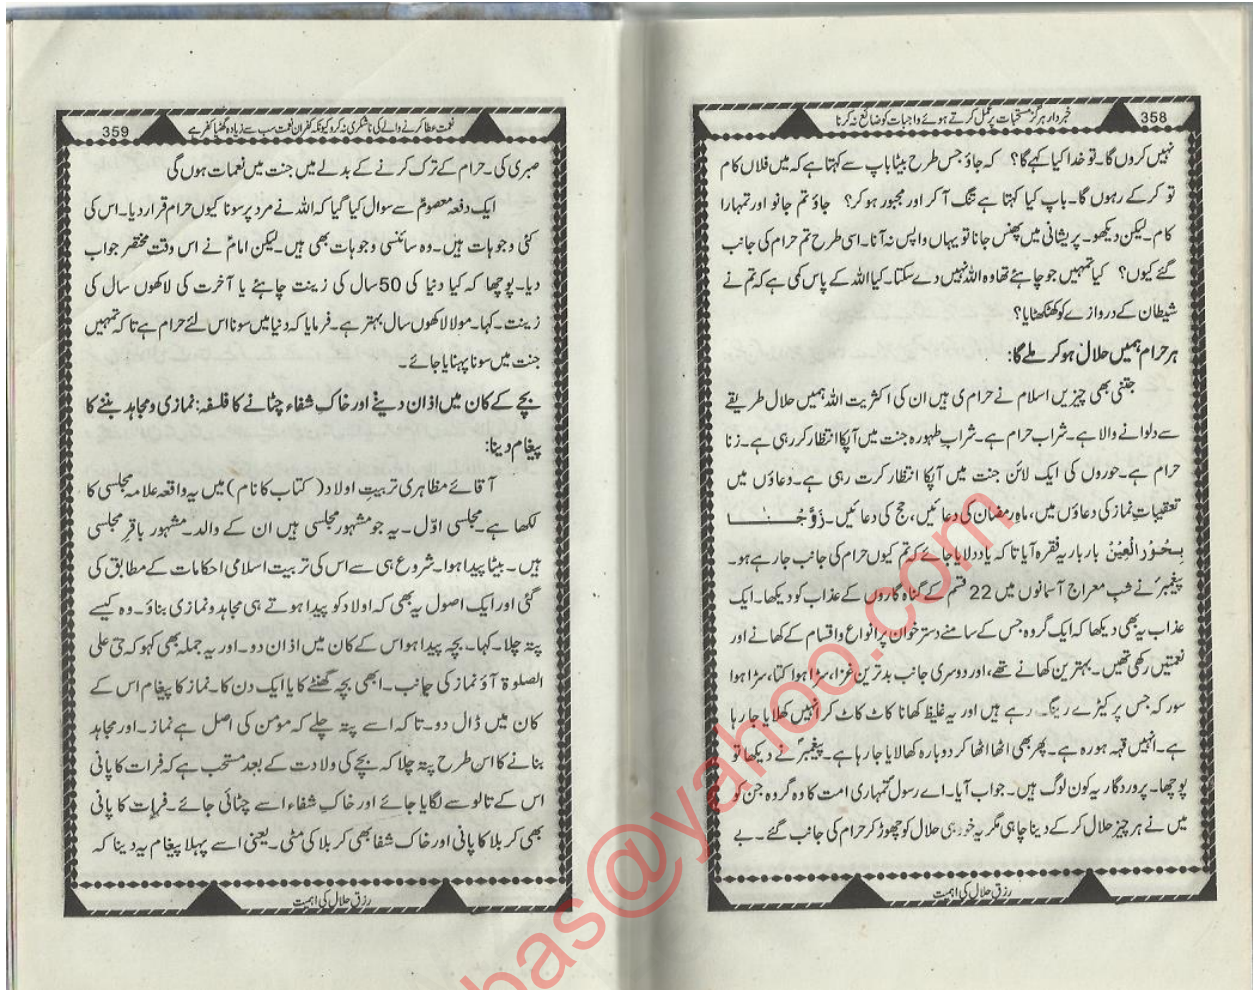 358
خبردار ہرگز مستحبات پر عمل کرتے ہوئے واجبات کو ضائع نہ کرنا
نہیں کروں گا۔ تو خدا کیا کہے گا؟ کہ جاؤ جس طرح بیٹا باپ سے کہتا ہے کہ میں فلاں کام
تو کر کے رہوں گا۔ باپ کیا کہتا ہے تنگ آ کر اور مجبور ہو کر؟ جاؤ تم جانو اور تمہارا
کام۔ لیکن دیکھو۔ پریشانی میں پھنس جانا تو یہاں واپس نہ آنا۔ اسی طرح تم حرام کی جانب
گئے کیوں؟ کیا تمہیں جو چاہئے تھا وہ اللہ نہیں دے سکتا۔ کیا اللہ کے پاس کمی ہے کہ تم نے
شیطان کے دروازے کو کھٹکھٹایا؟
ہر حرام ہمیں حلال ہو کر ملے گا:
جتنی بھی چیزیں اسلام نے حرام کی ہیں ان کی اکثریت اللہ ہمیں حلال طریقے
سے دلوانے والا ہے۔ شراب حرام ہے۔ شرابِ طہورہ جنت میں آپکا انتظار کر رہی ہے۔ زنا
حرام ہے۔ حوروں کی ایک لائن جنت میں آپکا انتظار کرت رہی ہے۔ دعاؤں میں
تعقیباتِ نماز کی دعاؤں میں، ماہِ رمضان کی دعائیں، حج کی دعائیں۔ زَوِّجْنَا
بِحُوْرِ الْعِيْنِ بار بار یہ فقرہ آیا تا کہ یاد دلایا جائے کہ تم کیوں حرام کی جانب جا رہے ہو۔
پیغمبرؐ نے شبِ معراج آسمانوں میں 22 قسم کے گناہ گاروں کے عذاب کو دیکھا۔ ایک
عذاب یہ بھی دیکھا کہ ایک گروہ جس کے سامنے دسترخوان پر انواع و اقسام کے کھانے اور
نعمتیں رکھی تھیں۔ بہترین کھانے تھے، اور دوسری جانب بدترین غزا، سڑا ہوا کتا، سڑا ہوا
سور کہ جس پر کیڑے رینگ رہے ہیں اور یہ غلیظ کھانا کاٹ کاٹ کر انہیں کھلایا جا رہا
ہے۔ انہیں قہہ ہو رہ ہے۔ پھر بھی اٹھا اٹھا کر دوبارہ کھالایا جا رہا ہے۔ پیغمبرؐ نے دیکھا تو
پوچھا۔ پروردگار یہ کون لوگ ہیں۔ جواب آیا۔ اے رسولؐ تمہاری امت کا وہ گروہ جن کو
میں نے ہر چیز حلال کر کے دینا چاہی مگر یہ خود ہی حلال کو چھوڑ کر حرام کی جانب گئے۔ بے
رزق حلال کی اہمیت
359
نعمت عطا کرنے والے کی ناشکری نہ کرو کیونکہ کفران نعمت سب سے زیادہ گھٹیا کفر ہے
صبری کی۔ حرام کے ترک کرنے کے بدلے میں جنت میں نعمات ہوں گی
ایک دفعہ معصومؑ سے سوال کیا گیا کہ اللہ نے مرد پر سونا کیوں حرام قرار دیا۔ اس کی
کئی وجوہات ہیں۔ وہ سائنسی وجوہات بھی ہیں۔ لیکن امامؑ نے اس وقت مختصر جواب
دیا۔ پوچھا کہ کیا دنیا کی 50 سال کی زینت چاہئے یا آخرت کی لاکھوں سال کی
زینت۔ کہا۔ مولا لاکھوں سال بہتر ہے۔ فرمایا کہ دنیا میں سونا اس لئے حرام ہے تا کہ تمہیں
جنت میں سونا پہنایا جائے۔
بچے کے کان میں اذان دینے اور خاکِ شفاء چٹانے کا فلسفہ: نمازی و مجاہد بننے کا
پیغام دینا:
آقائے مظاہری تربیتِ اولاد (کتاب کا نام) میں یہ واقعہ علامہ مجلسی کا
لکھا ہے۔ مجلسی اوّل۔ یہ جو مشہور مجلسی ہیں ان کے والد۔ مشہور باقرِ مجلسی
ہیں۔ بیٹا پیدا ہوا۔ شروع ہی سے اس کی تربیت اسلامی احکامات کے مطابق کی
گئی اور ایک اصول یہ بھی کہ اولاد کو پیدا ہوتے ہی مجاہد و نمازی بناؤ۔ وہ کیسے
پتہ چلا۔ کہا۔ بچہ پیدا ہوا اس کے کان میں اذان دو۔ اور یہ جملہ بھی کہو کہ حی علی
الصلوۃ آؤ نماز کی جانب۔ ابھی بچہ گھنٹے کا یا ایک دن کا۔ نماز کا پیغام اس کے
کان میں ڈال دو۔ تاکہ اسے پتہ چلے کہ مؤمن کی اصل ہے نماز۔ اور مجاہد
بنانے کا اس طرح پتہ چلا کہ بچے کی ولادت کے بعد مستحب ہے کہ فرات کا پانی
اس کے تالو سے لگایا جائے اور خاکِ شفاء اسے چٹائی جائے۔ فرات کا پانی
بھی کربلا کا پانی اور خاک شفا بھی کربلا کی مٹی۔ یعنی اسے پہلا پیغام یہ دینا کہ
رزق حلال کی اہمیت
bas@yahoo.com